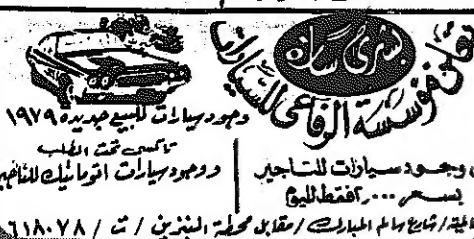 بشرى سارة
تعلن مؤسسة الرفاعي للسيارات
وجود سيارات للبيع جديده ١٩٧٩
تاكسي تحت الطلب
ووجود سيارات اتوماتيك للتأجير
وجود سيارات للتاجير
بسعر ٣٠٠٠ر٣ فقط لليوم
شارع سالم المبارك / مقابل محطة البنزين / ت / ٦١٨٠٧٨